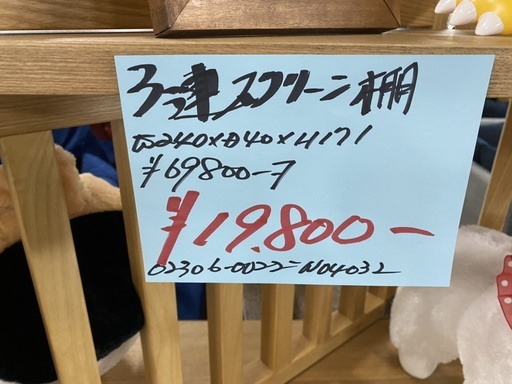 3連スクリーン棚
W240×D40×H171
¥69800-→
¥19,800-
02306-0022-N04032